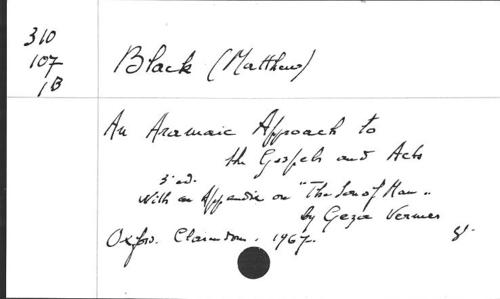 310
107
1B
Black (Matthew)
An Aramaic Approach to
the Gospels and Acts
3ᵉ ed.
with an Appendix on "The Son of Man"
by Geza Vermes
Oxford. Clarendon. 1967.